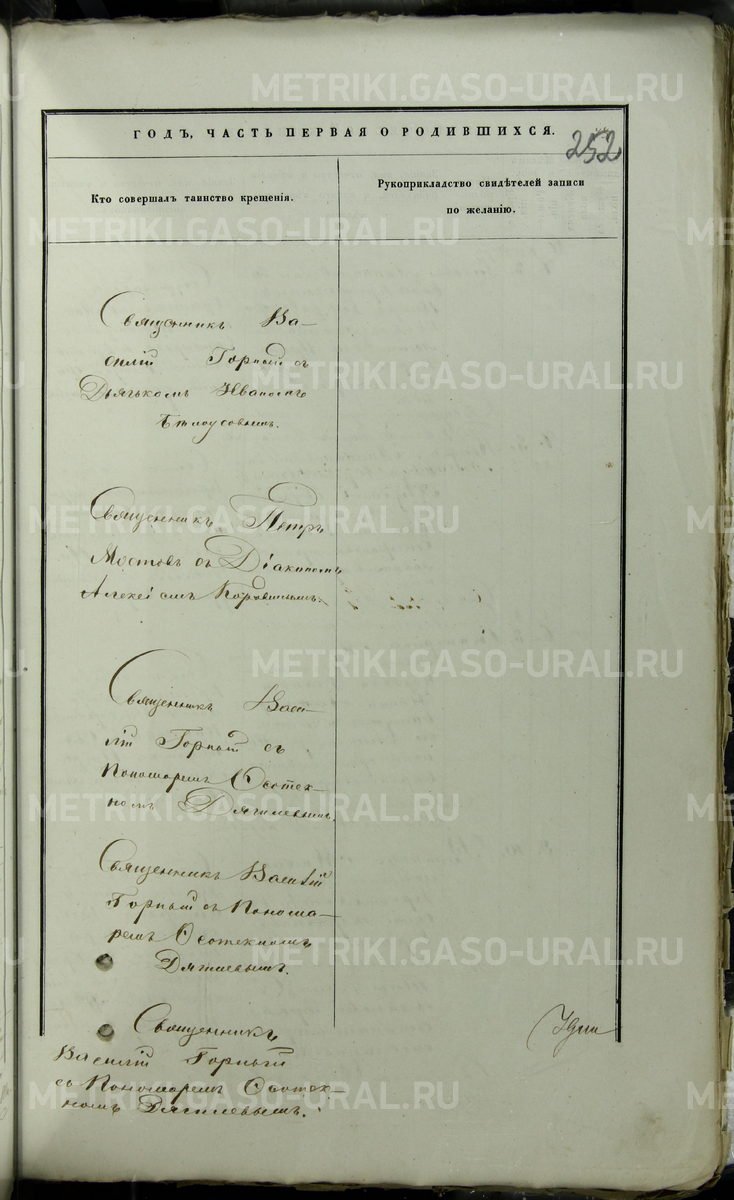 METRIKI.GASO-URAL.RU
ГОДЪ, ЧАСТЬ ПЕРВАЯ О РОДИВШИХСЯ.
252
Кто совершалъ таинство крещенія.
Рукоприкладство свидѣтелей записи
по желанію.
Священникъ Ва-
силій Горный съ
Дьячькомъ Иваномъ
Бѣлоусовымъ.
Священникъ Петръ
Мостовъ съ Діакономъ
Алексіемъ Коровинымъ.
Священникъ Васи-
лій Горный съ
Пономаремъ Ѳеотек-
номъ Дягилевымъ.
Священникъ Василій
Горный съ Понома-
ремъ Ѳеотекномъ
Дягилевымъ.
Священникъ
Василій Горный
съ Пономаремъ Ѳеотек-
номъ Дягилевымъ.